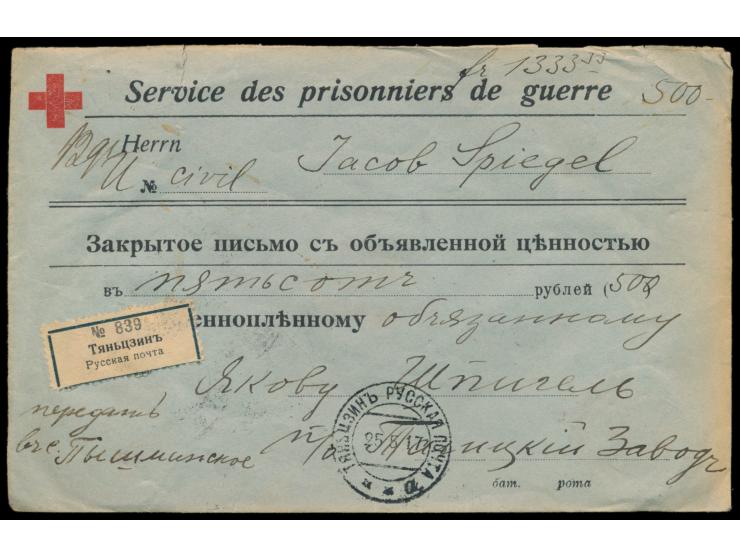 fr 1333 33
Service des prisonniers de guerre 500-
Herrn Jacob Spiegel
№ civil
Закрытое письмо съ объявленной цѣнностью
въ пятьсотъ рублей (500)
№ 839
Тяньцзинъ
Русская почта
енноплѣнному обязанному
Якову Шпигель
передать
Пышминское
п/о Талицкій Заводъ
ТЯНЬЦЗИНЪ РУССКАЯ ПОЧТА
25 5 17
бат. рота